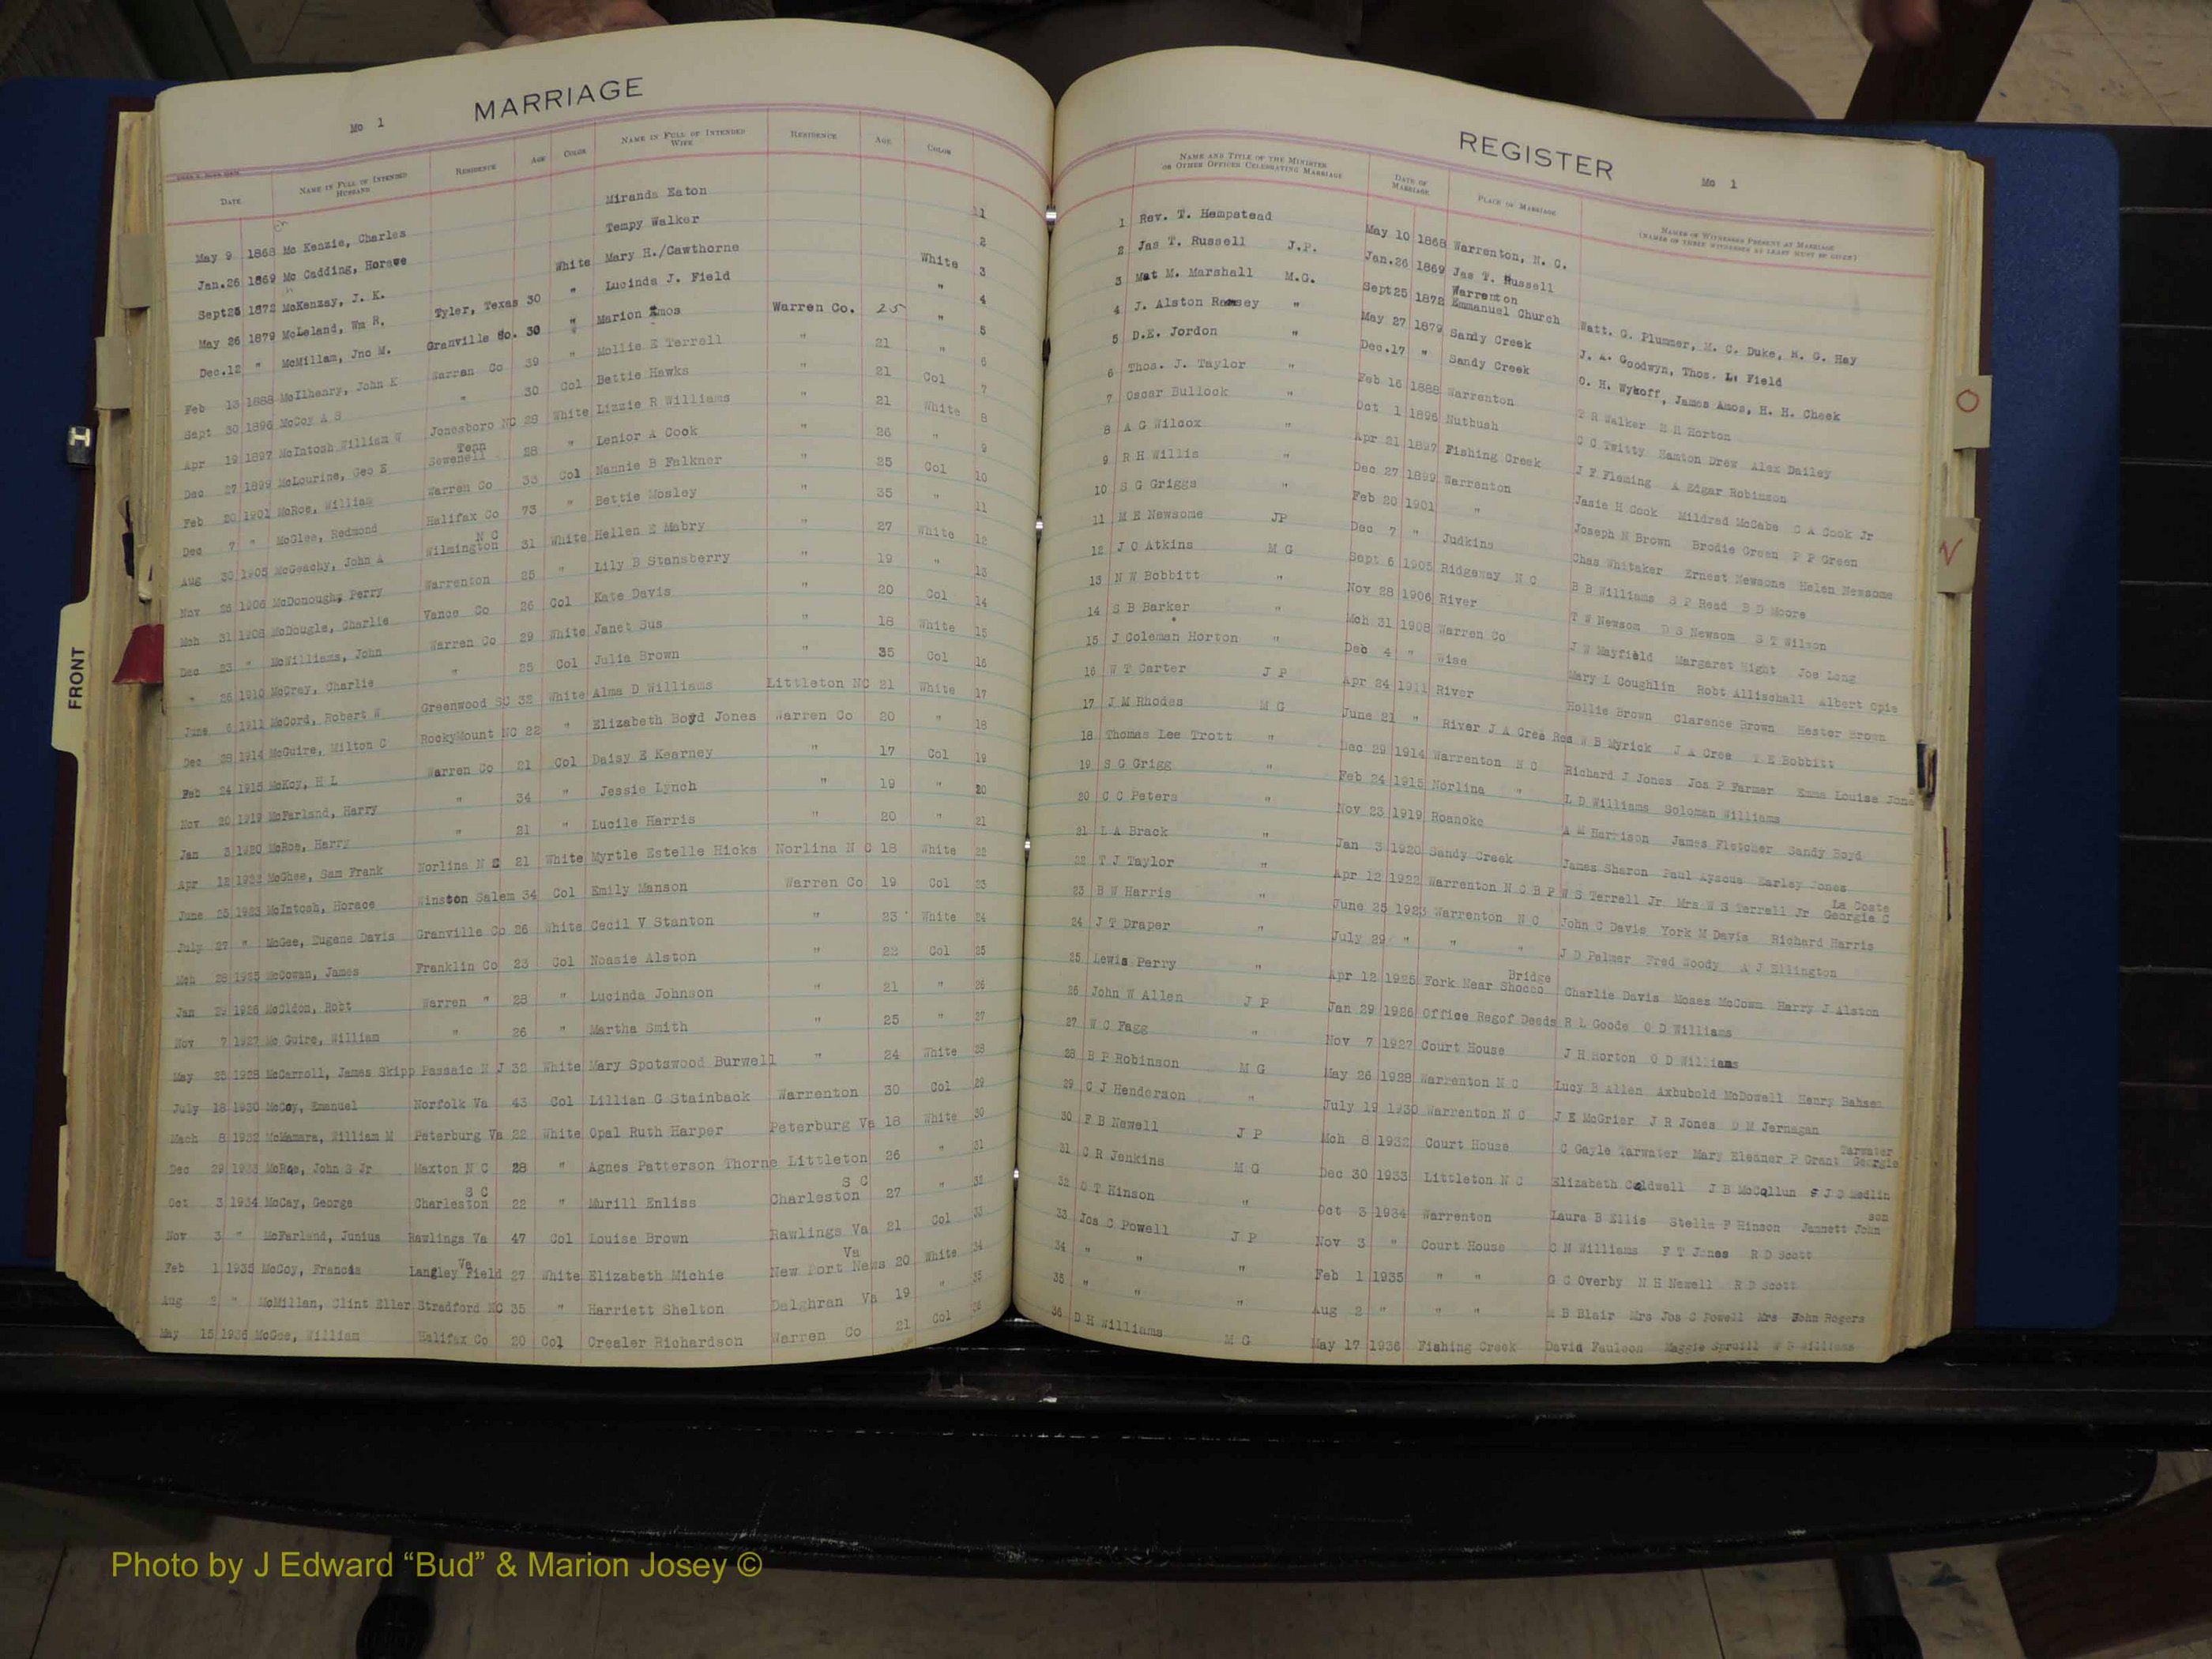 MARRIAGE
Mc 1
DATE NAME IN FULL OF INTENDED HUSBAND RESIDENCE AGE COLOR NAME IN FULL OF INTENDED WIFE RESIDENCE AGE COLOR
May 9 1868 Mc Kenzie, Charles Miranda Eaton 1
Jan.26 1869 Mc Cadding, Horave Tempy Walker 2
Sept25 1872 McKenzay, J. K. White Mary H./Cawthorne White 3
May 26 1879 McLeland, Wm R. Tyler, Texas 30 " Lucinda J. Field " 4
Dec.12 " McMillam, Jno M. Granville Co. 30 " Marion Amos Warren Co. 25 " 5
Feb 13 1888 McIlhenry, John K Warren Co 39 " Mollie E Terrell " 21 " 6
Sept 30 1896 McCoy A S " 30 Col Bettie Hawks " 21 Col 7
Apr 19 1897 McIntosh William W Jonesboro NC 28 White Lizzie R Williams " 21 White 8
Dec 27 1899 McLourine, Geo E Sewenell Tenn 28 " Lenior A Cook " 26 " 9
Feb 20 1901 McRoe, William Warren Co 33 Col Nannie B Falkner " 25 Col 10
Dec 7 " McGlee, Redmond Halifax Co 73 " Bettie Mosley " 35 " 11
Aug 30 1905 McGeachy, John A Wilmington N C 31 White Hellen E Mabry " 27 White 12
Nov 26 1906 McDonough, Perry Warrenton 25 " Lily B Stansberry " 19 " 13
Mch 31 1908 McDougle, Charlie Vance Co 26 Col Kate Davis " 20 Col 14
Dec 23 " McWilliams, John Warren Co 29 White Janet Sus " 18 White 15
" 26 1910 McCray, Charlie " 25 Col Julia Brown " 35 Col 16
June 6 1911 McCord, Robert W Greenwood SC 32 White Alma D Williams Littleton NC 21 White 17
Dec 28 1914 McGuire, Milton C RockyMount NC 22 " Elizabeth Boyd Jones Warren Co 20 " 18
Feb 24 1915 McKoy, H L Warren Co 21 Col Daisy E Kearney " 17 Col 19
Nov 20 1919 McFarland, Harry " 34 " Jessie Lynch " 19 " 20
Jan 3 1920 McRoe, Harry " 21 " Lucile Harris " 20 " 21
Apr 12 1922 McGhee, Sam Frank Norlina N C 21 White Myrtle Estelle Hicks Norlina N C 18 White 22
June 25 1923 McIntosh, Horace Winston Salem 34 Col Emily Manson Warren Co 19 Col 23
July 27 " McGee, Eugene Davis Granville Co 26 White Cecil V Stanton " 23 White 24
Mch 28 1925 McCowan, James Franklin Co 23 Col Noasie Alston " 22 Col 25
Jan 29 1926 McGldon, Robt Warren " 28 " Lucinda Johnson " 21 " 26
Nov 7 1927 Mc Guire, William " 26 " Martha Smith " 25 " 27
May 25 1928 McCarroll, James Skipp Passaic N J 32 White Mary Spotswood Burwell " 24 White 28
July 18 1930 McCoy, Emanuel Norfolk Va 43 Col Lillian G Stainback Warrenton 30 Col 29
Mach 8 1932 McMamara, William M Peterburg Va 22 White Opal Ruth Harper Peterburg Va 18 White 30
Dec 29 1933 McRae, John S Jr Maxton N C 28 " Agnes Patterson Thorne Littleton 26 " 31
Oct 3 1934 McCay, George Charleston S C 22 " Murill Enliss Charleston S C 27 " 32
Nov 3 " McFarland, Junius Rawlings Va 47 Col Louise Brown Rawlings Va 21 Col 33
Feb 1 1935 McCoy, Francis Langley Field Va 27 White Elizabeth Michie New Port News Va 20 White 34
Aug 2 " McMillen, Clint Eller Stradford NC 35 " Harriett Shelton Dalghran Va 19 " 35
May 15 1936 McGee, William Halifax Co 20 Col Crealer Richardson Warren Co 21 Col 36
REGISTER
Mc 1
NAME AND TITLE OF THE MINISTER OR OTHER OFFICER CELEBRATING MARRIAGE DATE OF MARRIAGE PLACE OF MARRIAGE NAMES OF WITNESSES PRESENT AT MARRIAGE (NAMES OF THREE WITNESSES AT LEAST MUST BE GIVEN)
1 Rev. T. Hempstead May 10 1868 Warrenton, N. C.
2 Jas T. Russell J.P. Jan.26 1869 Jas T. Russell
3 Mat M. Marshall M.G. Sept25 1872 Warrenton Emmanuel Church Watt. G. Plummer, M. C. Duke, N. G. Hay
4 J. Alston Ramsey " May 27 1879 Sandy Creek J. A. Goodwyn, Thos. L. Field
5 D.E. Jordon " Dec.17 " Sandy Creek O. H. Wykoff, James Amos, H. H. Cheek
6 Thos. J. Taylor " Feb 16 1888 Warrenton T R Walker H R Horton
7 Oscar Bullock " Oct 1 1896 Nutbush C C Twitty Hamton Drew Alex Dailey
8 A G Wilcox " Apr 21 1897 Fishing Creek J F Fleming A Edgar Robinson
9 R H Willis " Dec 27 1899 Warrenton Jasie H Cook Mildred McCabe C A Cook Jr
10 S G Griggs " Feb 20 1901 " Joseph N Brown Brodie Green P P Green
11 M E Newsome JP Dec 7 " Judkins Chas Whitaker Ernest Newsone Helen Newsome
12 J O Atkins M G Sept 6 1905 Ridgeway N C B B Williams S P Read B D Moore
13 N W Bobbitt " Nov 28 1906 River T W Newsom D S Newsom S T Wilson
14 S B Barker " Mch 31 1908 Warren Co J W Mayfield Margaret Hight Joe Long
15 J Coleman Horton " Dec 4 " Wise Mary L Coughlin Robt Allischall Albert Opie
16 W T Carter J P Apr 24 1911 River Hollie Brown Clarence Brown Hester Brown
17 J M Rhodes M G June 21 " River J A Cree Res W B Myrick J A Cree T E Bobbitt
18 Thomas Lee Trott " Dec 29 1914 Warrenton N C Richard J Jones Jos P Farmer Emma Louise Jones
19 S G Grigg " Feb 24 1915 Norlina " L D Williams Soloman Williams
20 C C Peters " Nov 23 1919 Roanoke A M Harrison James Fletcher Sandy Boyd
21 L A Brack " Jan 3 1920 Sandy Creek James Sharon Paul Ayscue Earley Jones
22 T J Taylor " Apr 12 1922 Warrenton N C B P W S Terrell Jr Mrs W S Terrell Jr Georgie C La Coste
23 B W Harris " June 25 1923 Warrenton N C John C Davis York M Davis Richard Harris
24 J T Draper " July 29 " " " J D Palmer Fred Woody A J Ellington
25 Lewis Perry " Apr 12 1925 Fork Near Shocco Bridge Charlie Davis Moses McComm Harry J Alston
26 John W Allen J P Jan 29 1926 Office Regof Deeds R L Goode O D Williams
27 W C Fagg " Nov 7 1927 Court House J H Horton O D Williams
28 B P Robinson M G May 26 1928 Warrenton N C Lucy B Allen Axbubold McDowell Henry Bahsen
29 C J Henderson " July 19 1930 Warrenton N C J E McGrier J R Jones D M Jernagan
30 F B Newell J P Mch 8 1932 Court House C Gayle Tarwater Mary Eleaner P Grant Georgie Tarwater
31 C R Jenkins M G Dec 30 1933 Littleton N C Elizabeth Caldwell J B McCollun S J D Medlin
32 O T Hinson " Oct 3 1934 Warrenton Laura B Ellis Stella F Hinson Jannett John son
33 Jos C Powell J P Nov 3 " Court House C N Williams F T Jones R D Scott
34 " " " Feb 1 1935 " " G C Overby N H Newell R D Scott
35 " " " Aug 2 " " " M B Blair Mrs Jos C Powell Mrs John Rogers
36 D H Williams M G May 17 1936 Fishing Creek David Faulson Maggie Spruill W S Williams
FRONT
O
N
Photo by J Edward “Bud” & Marion Josey ©